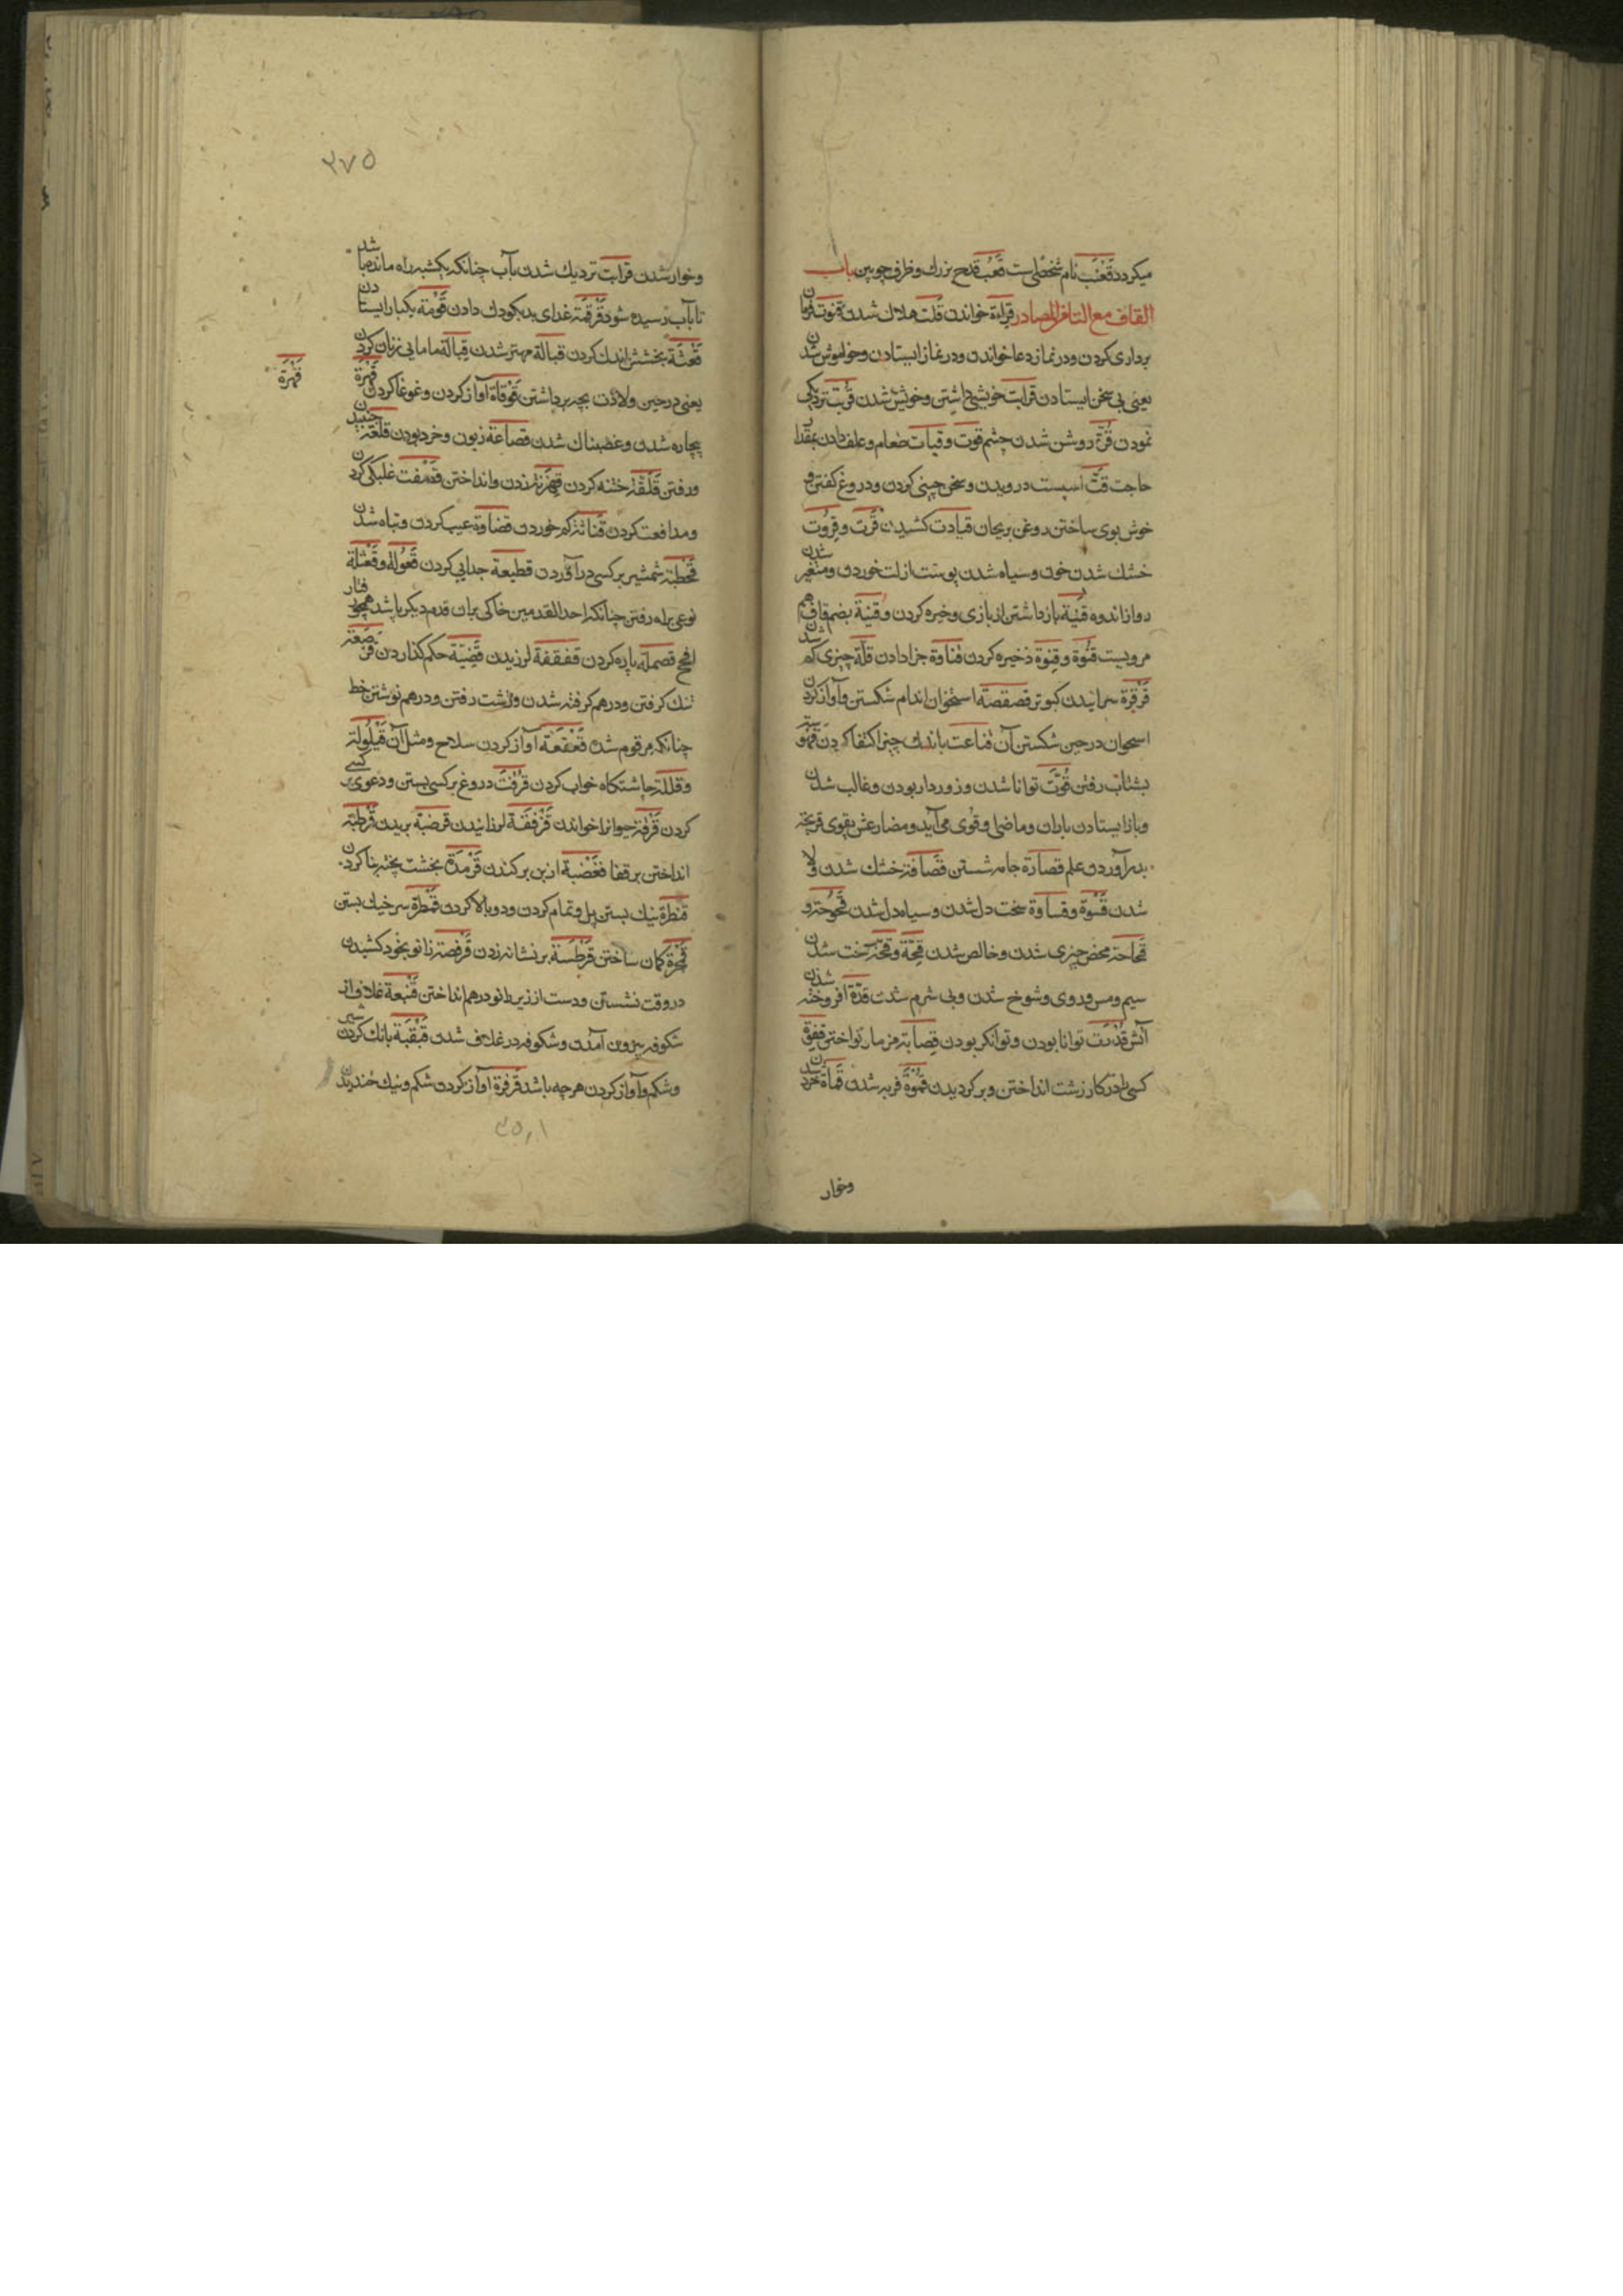 میکردد قَعْنَب نام شخصی است قَعْب قدح بزرك وظرف چوبین باب
القاف مع التا فی المصادر قراءة خواندن قلت هلاك شدن قنوت فرمان
برداری کردن ودر نماز دعا خواندن ودر نماز ایستادن وخاموش شدن
یعنی بی سخن ایستادن قرابت خویشی داشتن وخویش شدن قربت نزدیکی
نمودن قُرَّة روشن شدن چشم قوت وقیات طعام وعلف دادن بقدر
حاجت قتّ اسپست درویدن وسخن چینی کردن ودروغ کفتن و
خوش بوی ساختن روغن بریحان قیادت کشیدن قرت وقروت
خشك شدن خون وسیاه شدن پوست از لت خوردن ومتغیر شدن
رو از اندوه قنیة باز داشتن از بازی وذخیره کردن وقنیة بضم قاف هم
مرویست قنوة وقنوة ذخیره کردن قناوة جزا دادن قلة چیزی کم شدن
قرقرة سرانیدن کبوتر قصقصة استخوان اندام شکستن وآواز کردن
استخوان در حین شکستن آن قناعت باندك چیز اکتفا کردن
بشتاب رفتن قُوَّت توانا شدن وزوردار بودن وغالب شدن
وباز ایستادن باران وماضی او قوی می آید ومضارعش یقوی قریحة
بدر آوردن علم قصارة جامه شستن قصافة خشك شدن و
شدن قسوة وقساوة سخت دل شدن وسیاه دل شدن قحوحة و
قحاحة محض چیزی شدن وخالص شدن قِحَة وقحة سخت شدن
سم ومس وروی وشوخ شدن وبی شرم شدن قدة افروخته شدن
آتش قدرت توانا بودن وتوانکر بودن قصابة مزمار نواختن
کسی را در کار زشت انداختن وبر کردیدن قموة فربه شدن قماة خرد شدن
وخوار
۲۷۵
وخوار شدن قرابت نزدیك شدن بآب چنانکه یکشبه راه مانده باشد
تا بآب رسیده شود قرقمة غذای بد بکودك دادن قومة یکبار ایستادن
قعثة بخشش اندك کردن قبالة مهتر شدن قبالة مامایی زنان کردن
یعنی در حین ولادت بچه برداشتن قوقاة آواز کردن وغوغا کردن قهرة
قهرة
بیچاره شدن وغضبناك شدن قصاعة زبون وخرد بودن قلعة جنبیدن
ورفتن قلقة ختنه کردن زدن وانداختن غلبکی کردن
ومدافعت کردن کم خوردن قضاوة عیب کردن وتباه شدن
قحطبة شمشیر بر کسی در آوردن قطیعة جدایی کردن قعولة وقعثلة
نوعی براه رفتن چنانکه احد القدمین خاکی بران قدم دیکر پاشد همچو رفتار
افحج قصملة پاره کردن قفقفة لرزیدن قضیّة حکم کذاردن
تنك کرفتن ودرهم کرفته شدن وزشت رفتن ودرهم نوشتن خط
چنانکه مرقوم شد قعقعة آواز کردن سلاح ومثل آن قیلولة
وقللة چاشتکاه خواب کردن قرفت دروغ بر کسی بستن ودعوی بر کسی
کردن حیوانرا خواندن قرفقة لرزانیدن قرضبة بریدن قرطبة
انداختن بر قفا قعضبة از بن برکندن قرمدة بخشت پخته بنا کردن
قنطرة نیك بستن پل وتمام کردن ودوبالا کردن قمطرة سر خیك بستن
کمان ساختن قرطسة بر نشانه زدن قرفصة زانو بخود کشیدن
در وقت نشستن ودست از زیر زانو درهم انداختن قنبعة غلاف از
شکوفه بیرون آمدن وشکوفه در غلاف شدن قبقبة بانك کردن شیر
وشکم وآواز کردن هرچه باشد قرقرة آواز کردن شکم ونیك خندیدن